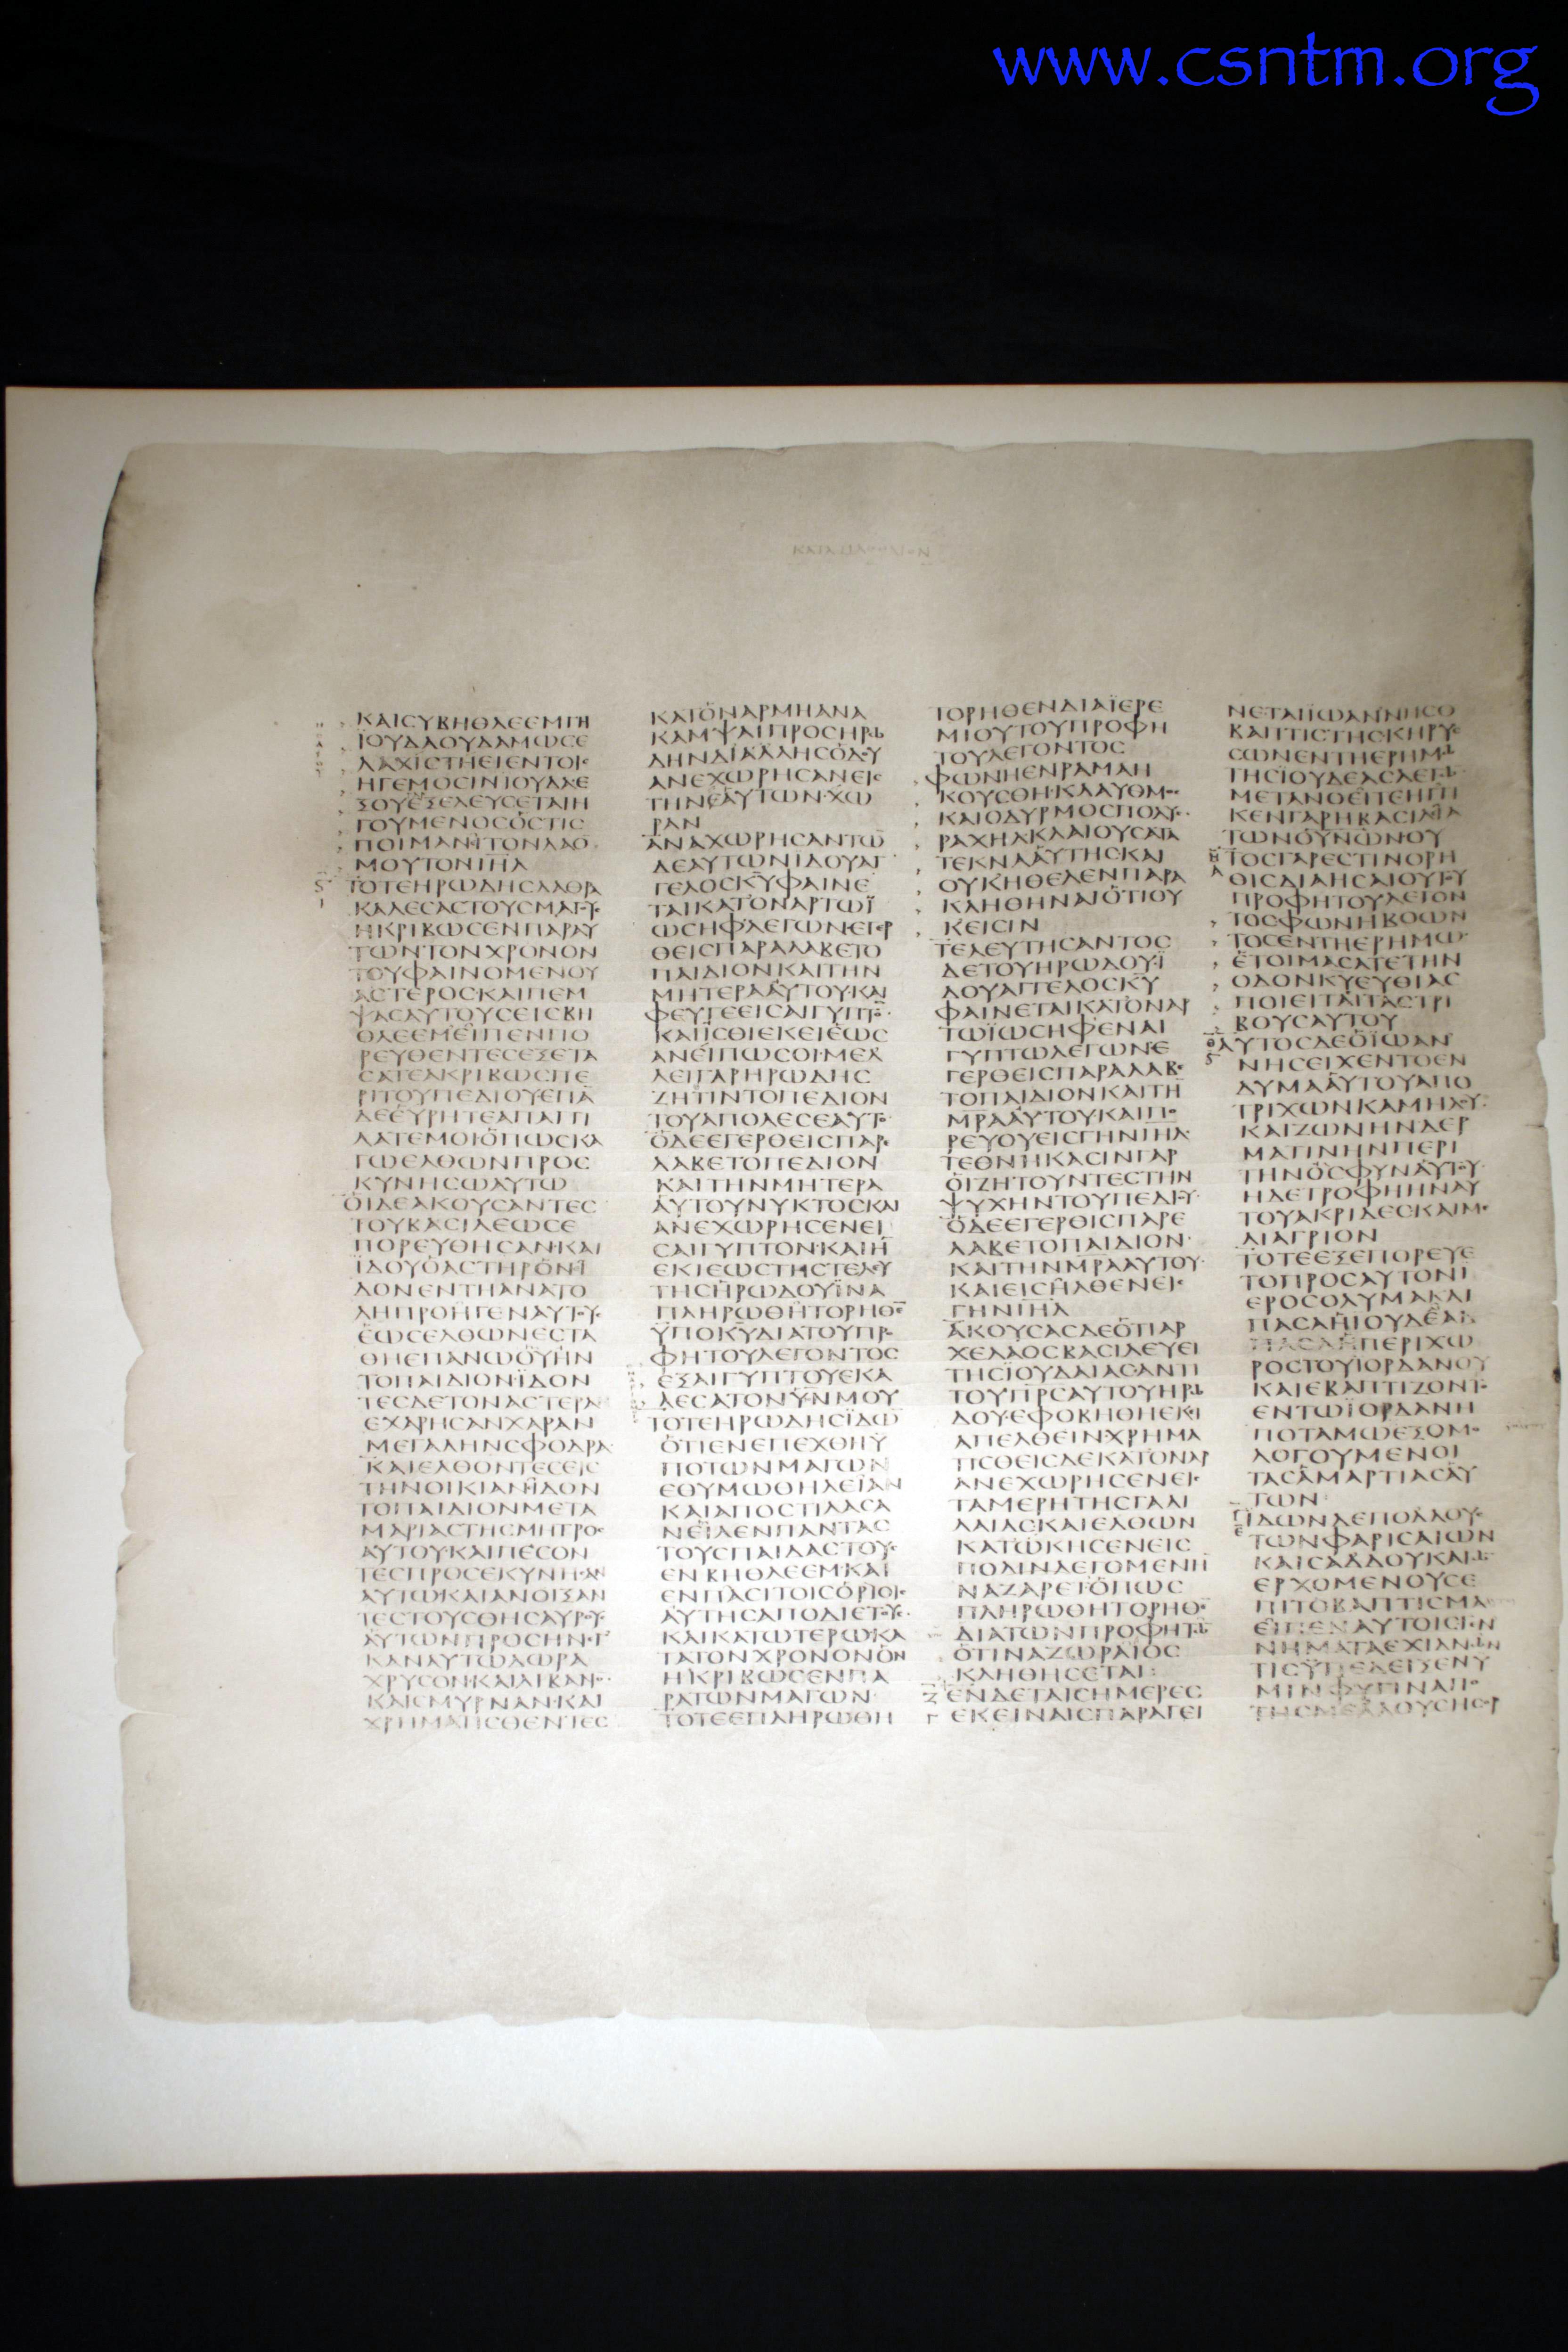 www.csntm.org
ΚΑΤΑ ΜΑΘΘΑΙΟΝ
ΚΑΙΣΥΒΗΘΛΕΕΜΓΗ
ΪΟΥΔΑΟΥΔΑΜΩΣΕ
ΛΑΧΙΣΤΗΕΙΕΝΤΟΙΣ
ΗΓΕΜΟΣΙΝΙΟΥΔΑΕ
ΣΟΥΕΞΕΛΕΥΣΕΤΑΙΗ
ΓΟΥΜΕΝΟΣΟΣΤΙΣ
ΠΟΙΜΑΝΙΤΟΝΛΑΟ̅
ΜΟΥΤΟΝΙΗΛ
ΤΟΤΕΗΡΩΔΗΣΛΑΘΡΑ
ΚΑΛΕΣΑΣΤΟΥΣΜΑΓΟΥΣ
ΗΚΡΙΒΩΣΕΝΠΑΡΑΥ
ΤΩΝΤΟΝΧΡΟΝΟΝ
ΤΟΥΦΑΙΝΟΜΕΝΟΥ
ΑΣΤΕΡΟΣΚΑΙΠΕΜ
ΨΑΣΑΥΤΟΥΣΕΙΣΒΗ
ΘΛΕΕΜΕΙΠΕΝΠΟ
ΡΕΥΘΕΝΤΕΣΕΞΕΤΑ
ΣΑΤΕΑΚΡΙΒΩΣΠΕ
ΡΙΤΟΥΠΕΔΙΟΥΕΠΑ̅
ΔΕΕΥΡΗΤΕΑΠΑΓΓΙ
ΛΑΤΕΜΟΙΟΠΩΣΚΑ
ΓΩΕΛΘΩΝΠΡΟΣ
ΚΥΝΗΣΩΑΥΤΩ
ΟΙΔΕΑΚΟΥΣΑΝΤΕΣ
ΤΟΥΒΑΣΙΛΕΩΣΕ
ΠΟΡΕΥΘΗΣΑΝΚΑΙ
ΪΔΟΥΟΑΣΤΗΡΟΝΙ
ΔΟΝΕΝΤΗΑΝΑΤΟ
ΛΗΠΡΟΗΓΕΝΑΥΤΟΥΣ
ΕΩΣΕΛΘΩΝΕΣΤΑ
ΘΗΕΠΑΝΩΟΥΗΝ
ΤΟΠΑΙΔΙΟΝΪΔΟΝ
ΤΕΣΔΕΤΟΝΑΣΤΕΡΑ
ΕΧΑΡΗΣΑΝΧΑΡΑΝ
ΜΕΓΑΛΗΝΣΦΟΔΡΑ
ΚΑΙΕΛΘΟΝΤΕΣΕΙΣ
ΤΗΝΟΙΚΙΑΝΪΔΟΝ
ΤΟΠΑΙΔΙΟΝΜΕΤΑ
ΜΑΡΙΑΣΤΗΣΜΗΤΡΟΣ
ΑΥΤΟΥΚΑΙΠΕΣΟΝ
ΤΕΣΠΡΟΣΕΚΥΝΗΣΑΝ
ΑΥΤΩΚΑΙΑΝΟΙΞΑΝ
ΤΕΣΤΟΥΣΘΗΣΑΥΡΟΥΣ
ΑΥΤΩΝΠΡΟΣΗΝΕΓ
ΚΑΝΑΥΤΩΔΩΡΑ
ΧΡΥΣΟΝΚΑΙΛΙΒΑΝΟΝ
ΚΑΙΣΜΥΡΝΑΝΚΑΙ
ΧΡΗΜΑΤΙΣΘΕΝΤΕΣ
ΚΑΤΟΝΑΡΜΗΑΝΑ
ΚΑΜΨΑΙΠΡΟΣΗΡΩ
ΔΗΝΔΙΑΛΛΗΣΟΔΟΥ
ΑΝΕΧΩΡΗΣΑΝΕΙΣ
ΤΗΝΕΑΥΤΩΝΧΩ
ΡΑΝ
ΑΝΑΧΩΡΗΣΑΝΤΩ̅
ΔΕΑΥΤΩΝΙΔΟΥΑΓ
ΓΕΛΟΣΚΥΦΑΙΝΕ
ΤΑΙΚΑΤΟΝΑΡΤΩΪ
ΩΣΗΦΛΕΓΩΝΕΓΕΡ
ΘΕΙΣΠΑΡΑΛΑΒΕΤΟ
ΠΑΙΔΙΟΝΚΑΙΤΗΝ
ΜΗΤΕΡΑΑΥΤΟΥΚΑΙ
ΦΕΥΓΕΕΙΣΑΙΓΥΠΤΟ̅
ΚΑΙΪΣΘΙΕΚΕΙΕΩΣ
ΑΝΕΙΠΩΣΟΙΜΕΛ
ΛΕΙΓΑΡΗΡΩΔΗΣ
ΖΗΤΙΝΤΟΠΕΔΙΟΝ
ΤΟΥΑΠΟΛΕΣΕΑΥΤΟ
ΟΔΕΕΓΕΡΘΕΙΣΠΑΡΕ
ΛΑΒΕΤΟΠΕΔΙΟΝ
ΚΑΙΤΗΝΜΗΤΕΡΑ
ΑΥΤΟΥΝΥΚΤΟΣΚΑΙ
ΑΝΕΧΩΡΗΣΕΝΕΙ
ΣΑΙΓΥΠΤΟΝΚΑΙΗ̅
ΕΚΙΕΩΣΤΗΣΤΕΛΕΥ
ΤΗΣΗΡΩΔΟΥΪΝΑ
ΠΛΗΡΩΘΗΤΟΡΗΘΕ̅
ΫΠΟΚΥΔΙΑΤΟΥΠΡΟ
ΦΗΤΟΥΛΕΓΟΝΤΟΣ
ΕΞΑΙΓΥΠΤΟΥΕΚΑ
ΛΕΣΑΤΟΝΥΝΜΟΥ
ΤΟΤΕΗΡΩΔΗΣΪΔΩ̅
ΟΤΙΕΝΕΠΕΧΘΗΫ
ΠΟΤΩΝΜΑΓΩΝ
ΕΘΥΜΩΘΗΛΕΙΑΝ
ΚΑΙΑΠΟΣΤΙΛΑΣΑ
ΝΕΙΛΕΝΠΑΝΤΑΣ
ΤΟΥΣΠΑΙΔΑΣΤΟΥΣ
ΕΝΒΗΘΛΕΕΜΚΑΙ
ΕΝΠΑΣΙΤΟΙΣΟΡΙΟΙΣ
ΑΥΤΗΣΑΠΟΔΙΕΤΟΥΣ
ΚΑΙΚΑΤΩΤΕΡΩΚΑ
ΤΑΤΟΝΧΡΟΝΟΝΟΝ
ΗΚΡΙΒΩΣΕΝΠΑ
ΡΑΤΩΝΜΑΓΩΝ
ΤΟΤΕΕΠΛΗΡΩΘΗ
ΤΟΡΗΘΕΝΔΙΑΪΕΡΕ
ΜΙΟΥΤΟΥΠΡΟΦΗ
ΤΟΥΛΕΓΟΝΤΟΣ
ΦΩΝΗΕΝΡΑΜΑΗ
ΚΟΥΣΘΗΚΛΑΥΘΜΟΣ
ΚΑΙΟΔΥΡΜΟΣΠΟΛΥΣ
ΡΑΧΗΛΚΛΑΙΟΥΣΑΤΑ
ΤΕΚΝΑΑΥΤΗΣΚΑΙ
ΟΥΚΗΘΕΛΕΝΠΑΡΑ
ΚΛΗΘΗΝΑΙΟΤΙΟΥ
ΚΕΙΣΙΝ
ΤΕΛΕΥΤΗΣΑΝΤΟΣ
ΔΕΤΟΥΗΡΩΔΟΥΪ
ΔΟΥΑΓΓΕΛΟΣΚΥ
ΦΑΙΝΕΤΑΙΚΑΤΟΝΑΡ
ΤΩΪΩΣΗΦΕΝΑΙ
ΓΥΠΤΩΛΕΓΩΝΕ
ΓΕΡΘΕΙΣΠΑΡΑΛΑΒΕ
ΤΟΠΑΙΔΙΟΝΚΑΙΤΗ̅
ΜΡΑΑΥΤΟΥΚΑΙΠΟ
ΡΕΥΟΥΕΙΣΓΗΝΙΗΛ
ΤΕΘΝΗΚΑΣΙΝΓΑΡ
ΟΙΖΗΤΟΥΝΤΕΣΤΗΝ
ΨΥΧΗΝΤΟΥΠΕΔΙΟΥ
ΟΔΕΕΓΕΡΘΙΣΠΑΡΕ
ΛΑΒΕΤΟΠΑΙΔΙΟΝ
ΚΑΙΤΗΝΜΡΑΑΥΤΟΥ
ΚΑΙΕΙΣΗΛΘΕΝΕΙΣ
ΓΗΝΙΗΛ
ΑΚΟΥΣΑΣΔΕΟΤΙΑΡ
ΧΕΛΑΟΣΒΑΣΙΛΕΥΕΙ
ΤΗΣΪΟΥΔΑΙΑΣΑΝΤΙ
ΤΟΥΠΡΣΑΥΤΟΥΗΡΩ
ΔΟΥΕΦΟΒΗΘΗΕΚΕΙ
ΑΠΕΛΘΕΙΝΧΡΗΜΑ
ΤΙΣΘΕΙΣΔΕΚΑΤΟΝΑΡ
ΑΝΕΧΩΡΗΣΕΝΕΙΣ
ΤΑΜΕΡΗΤΗΣΓΑΛΙ
ΛΑΙΑΣΚΑΙΕΛΘΩΝ
ΚΑΤΩΚΗΣΕΝΕΙΣ
ΠΟΛΙΝΛΕΓΟΜΕΝΗ̅
ΝΑΖΑΡΕΤΟΠΩΣ
ΠΛΗΡΩΘΗΤΟΡΗΘΕ̅
ΔΙΑΤΩΝΠΡΟΦΗΤΩ̅
ΟΤΙΝΑΖΩΡΑΙΟΣ
ΚΛΗΘΗΣΕΤΑΙ
ΕΝΔΕΤΑΙΣΗΜΕΡΕΣ
ΕΚΕΙΝΑΙΣΠΑΡΑΓΕΙ
ΝΕΤΑΙΪΩΑΝΝΗΣΟ
ΒΑΠΤΙΣΤΗΣΚΗΡΥΣ
ΣΩΝΕΝΤΗΕΡΗΜΩ
ΤΗΣΪΟΥΔΕΑΣΛΕΓΩ
ΜΕΤΑΝΟΕΙΤΕΗΓΓΙ
ΚΕΝΓΑΡΗΒΑΣΙΛΙΑ
ΤΩΝΟΥΝΩΝΟΥ
ΤΟΣΓΑΡΕΣΤΙΝΟΡΗ
ΘΙΣΔΙΑΗΣΑΙΟΥΤΟΥ
ΠΡΟΦΗΤΟΥΛΕΓΟΝ
ΤΟΣΦΩΝΗΒΟΩΝ
ΤΟΣΕΝΤΗΕΡΗΜΩ
ΕΤΟΙΜΑΣΑΤΕΤΗΝ
ΟΔΟΝΚΥΕΥΘΙΑΣ
ΠΟΙΕΙΤΑΙΤΑΣΤΡΙ
ΒΟΥΣΑΥΤΟΥ
ΑΥΤΟΣΔΕΟΪΩΑΝ
ΝΗΣΕΙΧΕΝΤΟΕΝ
ΔΥΜΑΑΥΤΟΥΑΠΟ
ΤΡΙΧΩΝΚΑΜΗΛΟΥ
ΚΑΙΖΩΝΗΝΔΕΡ
ΜΑΤΙΝΗΝΠΕΡΙ
ΤΗΝΟΣΦΥΝΑΥΤΟΥ
ΗΔΕΤΡΟΦΗΗΝΑΥ
ΤΟΥΑΚΡΙΔΕΣΚΑΙΜΕ
ΛΙΑΓΡΙΟΝ
ΤΟΤΕΕΞΕΠΟΡΕΥΕ
ΤΟΠΡΟΣΑΥΤΟΝΙ
ΕΡΟΣΟΛΥΜΑΚΑΙ
ΠΑΣΑΗΙΟΥΔΕΑΚ
ΠΑΣΑΗΠΕΡΙΧΩ
ΡΟΣΤΟΥΪΟΡΔΑΝΟΥ
ΚΑΙΕΒΑΠΤΙΖΟΝΤΟ
ΕΝΤΩΪΟΡΔΑΝΗ
ΠΟΤΑΜΩΕΞΟΜΟ
ΛΟΓΟΥΜΕΝΟΙ
ΤΑΣΑΜΑΡΤΙΑΣΑΥ
ΤΩΝ
ΪΔΩΝΔΕΠΟΛΛΟΥΣ
ΤΩΝΦΑΡΙΣΑΙΩΝ
ΚΑΙΣΑΔΔΟΥΚΑΙΩ
ΕΡΧΟΜΕΝΟΥΣΕ
ΠΙΤΟΒΑΠΤΙΣΜΑ
ΕΙΠΕΝΑΥΤΟΙΣΓΕΝ
ΝΗΜΑΤΑΕΧΙΔΝΩΝ
ΤΙΣΫΠΕΔΕΙΞΕΝΥ
ΜΙΝΦΥΓΙΝΑΠΟ
ΤΗΣΜΕΛΛΟΥΣΗΣΟΡ